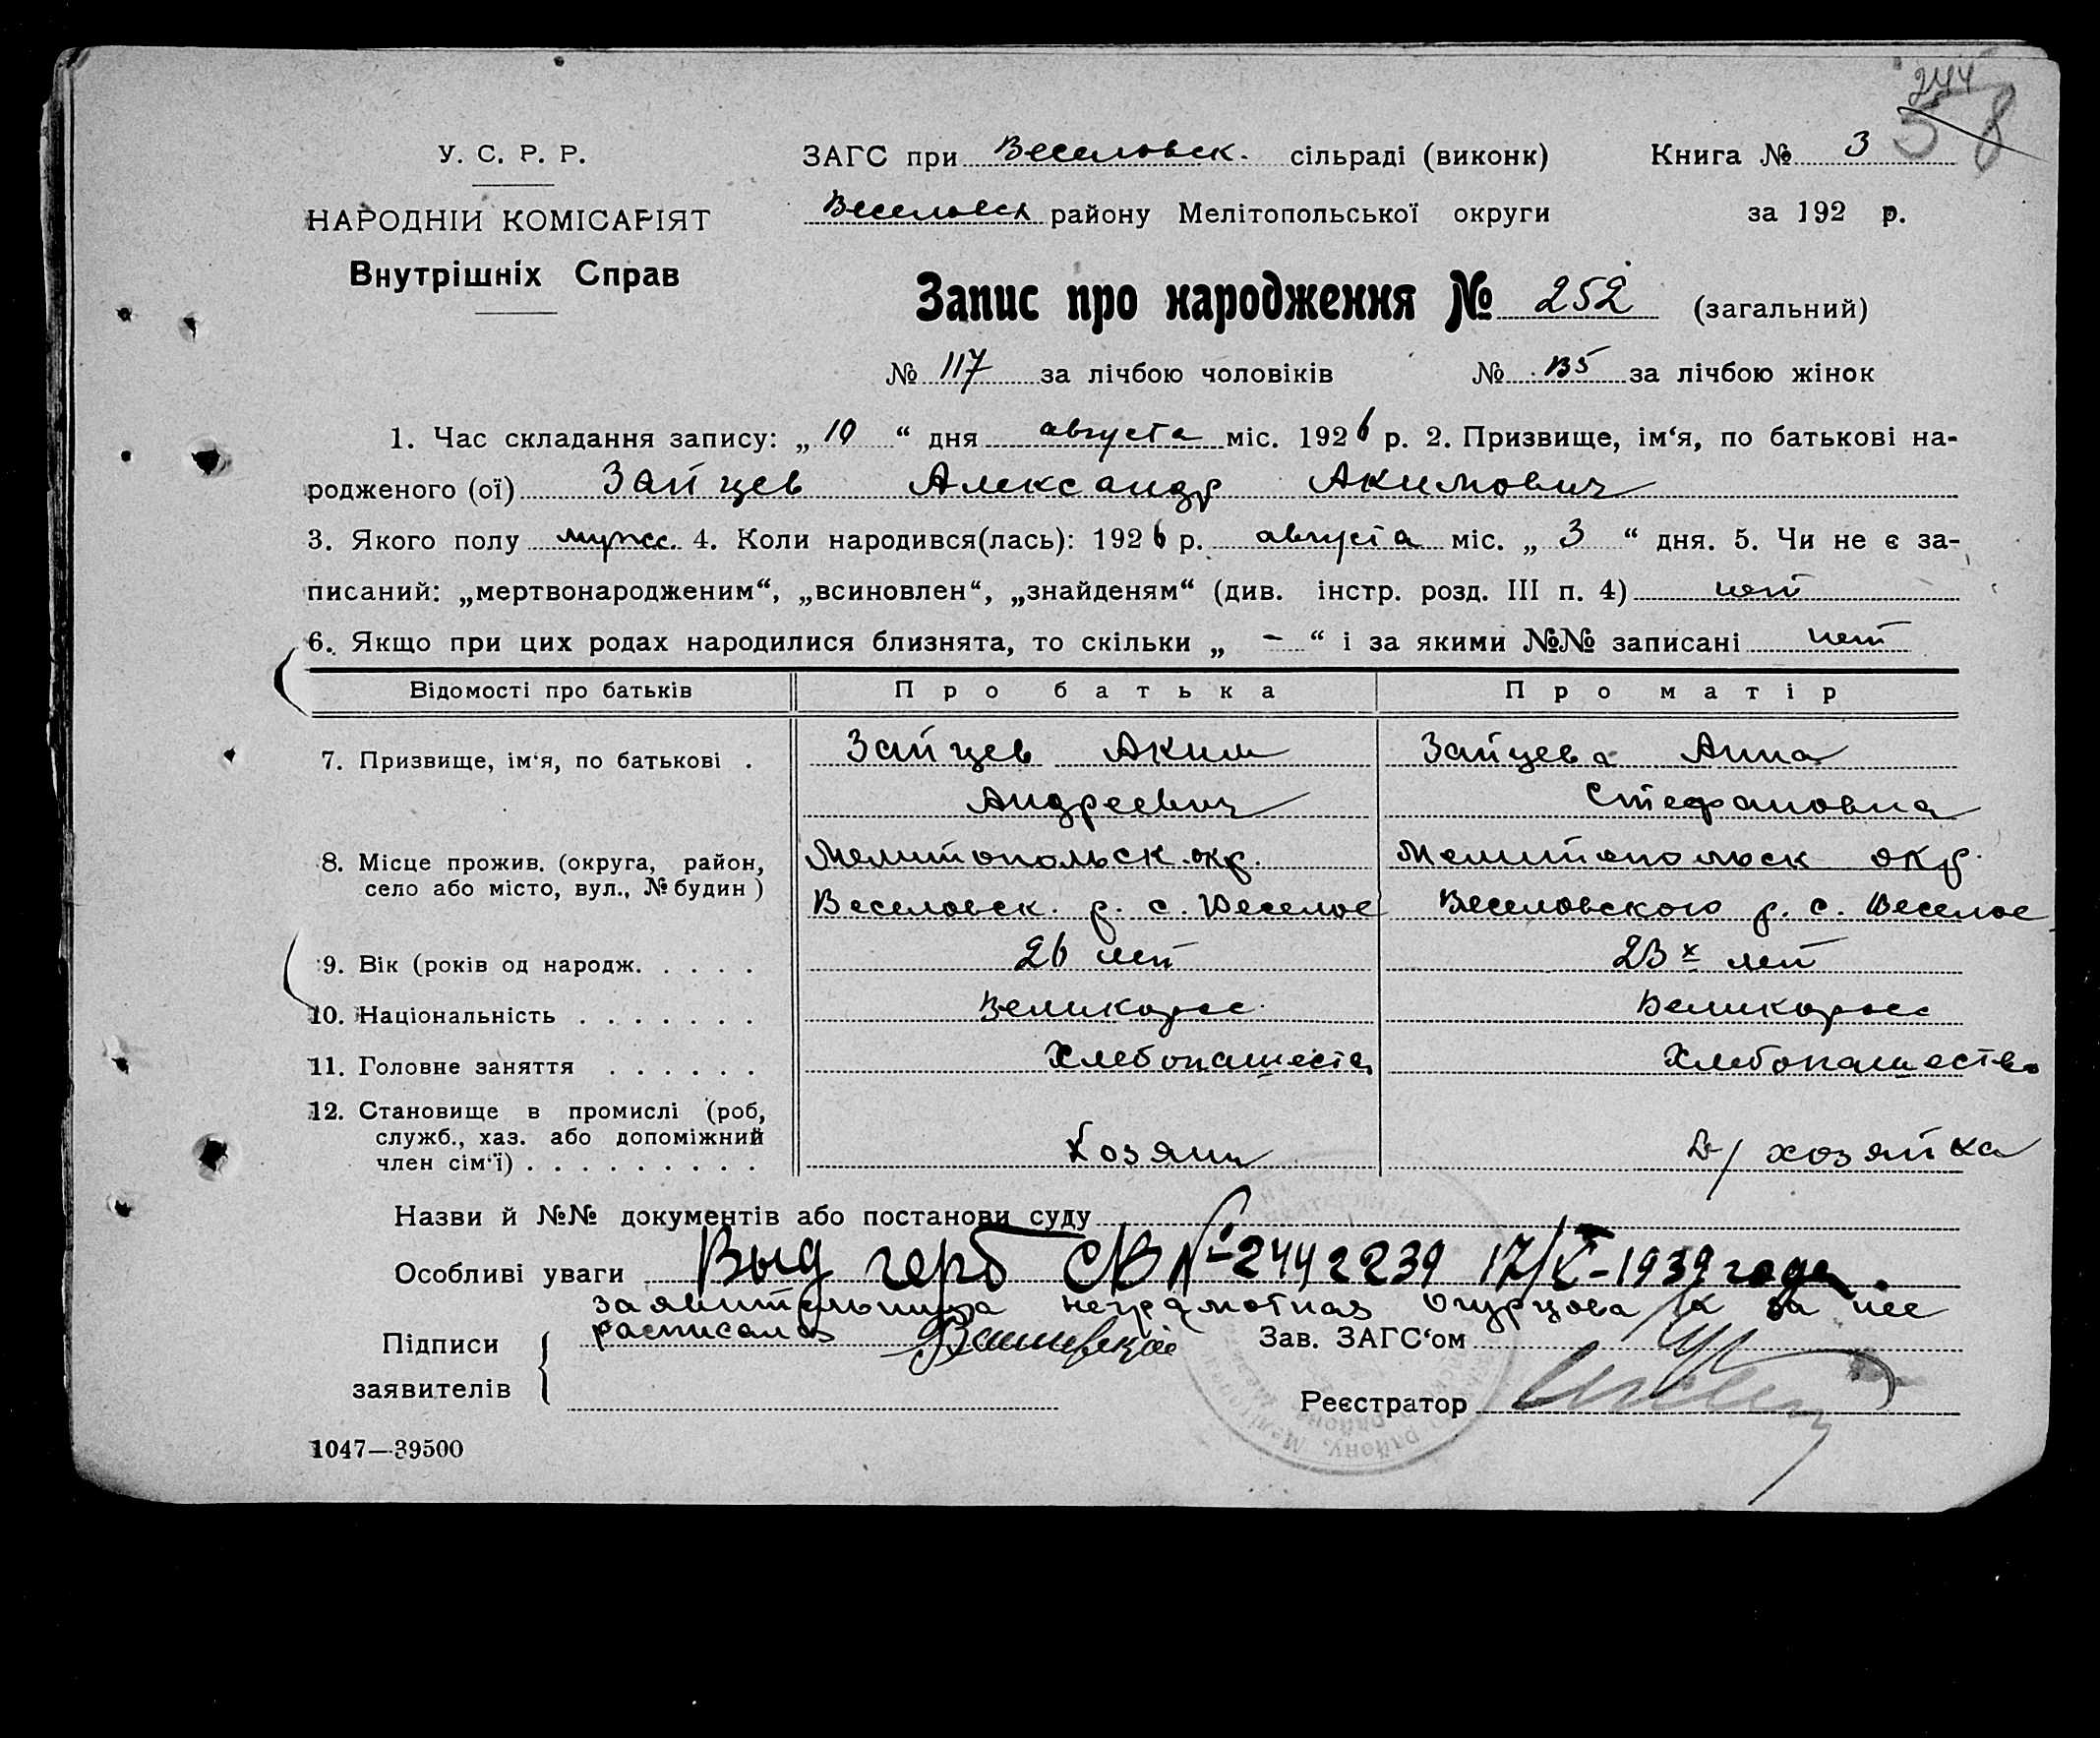 244
58
У. С. Р. Р.
НАРОДНІЙ КОМІСАРІЯТ
Внутрішніх Справ
ЗАГС при Веселовск. сільраді (виконк)
Книга № 3
Веселовск району Мелітопольської округи
за 192 р.
Запис про народження № 252 (загальний)
№ 117 за лічбою чоловіків № 135 за лічбою жінок
1. Час складання запису: „ 10 “ дня августа міс. 1926 р. 2. Призвище, ім‘я, по батькові на-
родженого (ої) Зайцев Александр Акимович
3. Якого полу мужс. 4. Коли народився(лась): 1926 р. августа міс. „ 3 “ дня. 5. Чи не є за-
писаний: „мертвонародженим“, „всиновлен“, „знайденям“ (див. інстр. розд. III п. 4) нет
6. Якщо при цих родах народилися близнята, то скільки „ - “ і за якими №№ записані нет
Відомості про батьків
Про батька
Про матір
7. Призвище, ім‘я, по батькові .
Зайцев Аким
Андреевич
Зайцева Анна
Стефановна
8. Місце прожив. (округа, район,
село або місто, вул., № будин)
Мелитопольск. окр.
Веселовск. р. с. Веселое
Мелитопольск окр.
Веселовского р. с. Веселое
9. Вік (років од народж. . . . .
26 лет
23х лет
10. Національність . . . . . . .
Великорос
Великоросс
11. Головне заняття . . . . . .
Хлебопашеств
Хлебопашество
12. Становище в промислі (роб,
служб., хаз. або допоміжний
член сім‘ї) . . . . . . . . .
Хозяин
Д/хозяйка
Назви й №№ документів або постанови суду
Особливі уваги Выд герб СВ №-2442239 17/X-1939 года.
заявительница неграмотная Огурцова а за нее
расписалась
Підписи
заявителів
Зав. ЗАГС‘ом
Реєстратор
1047—39500